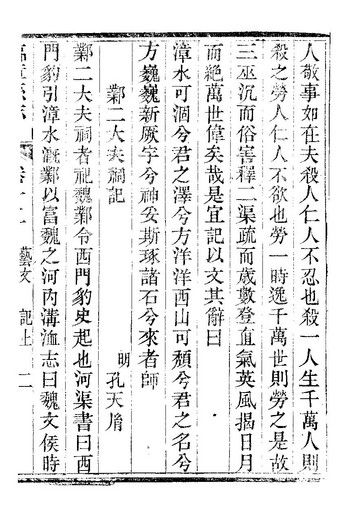 人敬事如在夫殺人仁人不忍也殺一人生千萬人則
殺之勞人仁人不欲也勞一時逸千萬世則勞之是故
三巫沉而俗害釋二渠疏而歲數登血氣英風揭日月
而絶萬世偉矣哉是宜記以文其辭曰
漳水可涸兮君之澤兮方洋洋西山可頹兮君之名兮
方巍巍新厥宇兮神妥斯琢諸石兮來者師
鄴二大夫祠記
明 孔天胤
鄴二大夫祠者祀魏鄴令西門豹史起也河渠書曰西
門豹引漳水漑鄴以富魏之河内溝洫志曰魏文侯時
卷十二 藝文 記上 二